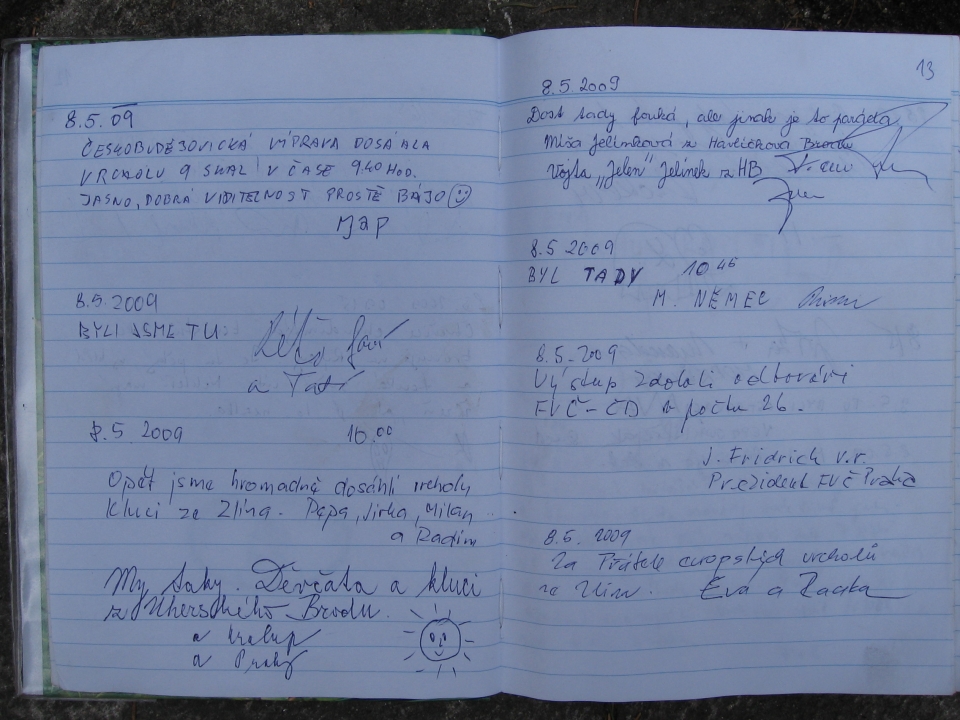 8.5.09
ČESKOBUDĚJOVICKÁ VÝPRAVA DOSÁHLA
VRCHOLU 9 SKAL V ČASE 9.40 HOD.
JASNO, DOBRÁ VIDITELNOST PROSTĚ BÁJO
8.5.2009
BYLI JSME TU:
a Taťí
8.5.2009 10.00
Opět jsme hromadně dosáhli vrcholu
Kluci ze Zlína. Pepa, Jirka, Milan
a Radim
My taky. Děvčata a kluci
z Uherského Brodu.
a Kralup
a Prahy
13
8.5.2009
Dost tady fouká, ale jinak je to paráda
Míša Jelínková z Havlíčkova Brodu
Vojta „Jelen" Jelínek z HB
8.5 2009
BYL TADY 10 45
M. NĚMEC
8.5.2009
Výstup zdolali odboráři
FVČ-ČD v počtu 26.
J. Fridrich v.r.
Prezident FVČ Praha
8.5. 2009
Za Přátele evropských vrcholů
ze Zlína. Eva a